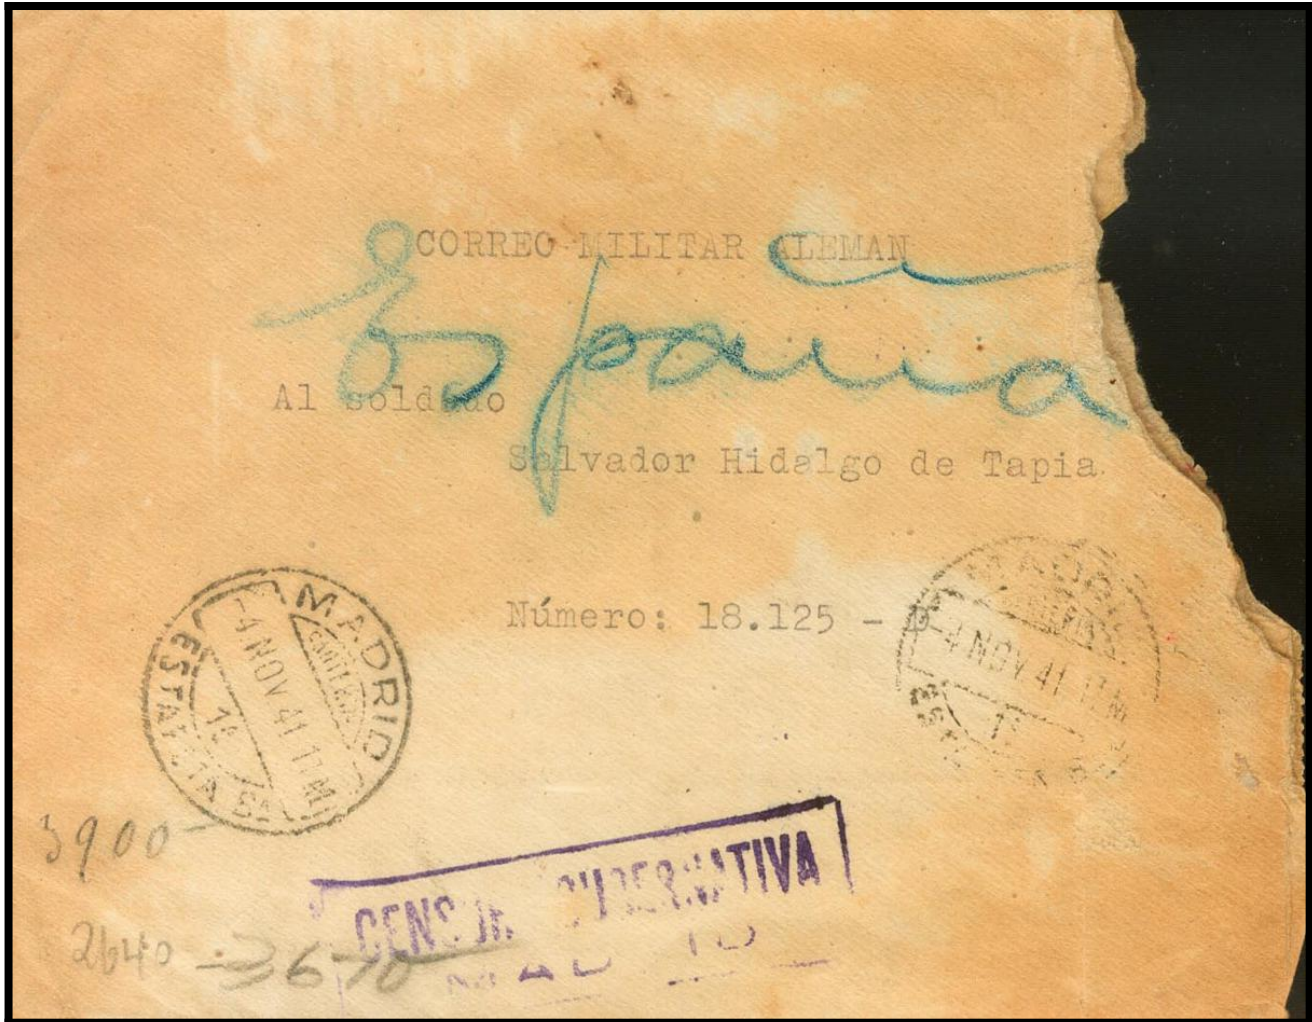 CORREO MILITAR ALEMAN
España
Al soldado
Salvador Hidalgo de Tapia.
Número: 18.125 -
MADRID
-4 NOV 41 17M
ESTAFETA
MADRID
-4 NOV 41 17M
3900-
CENSURA GUBERNATIVA
MADRID
2640 - 3670